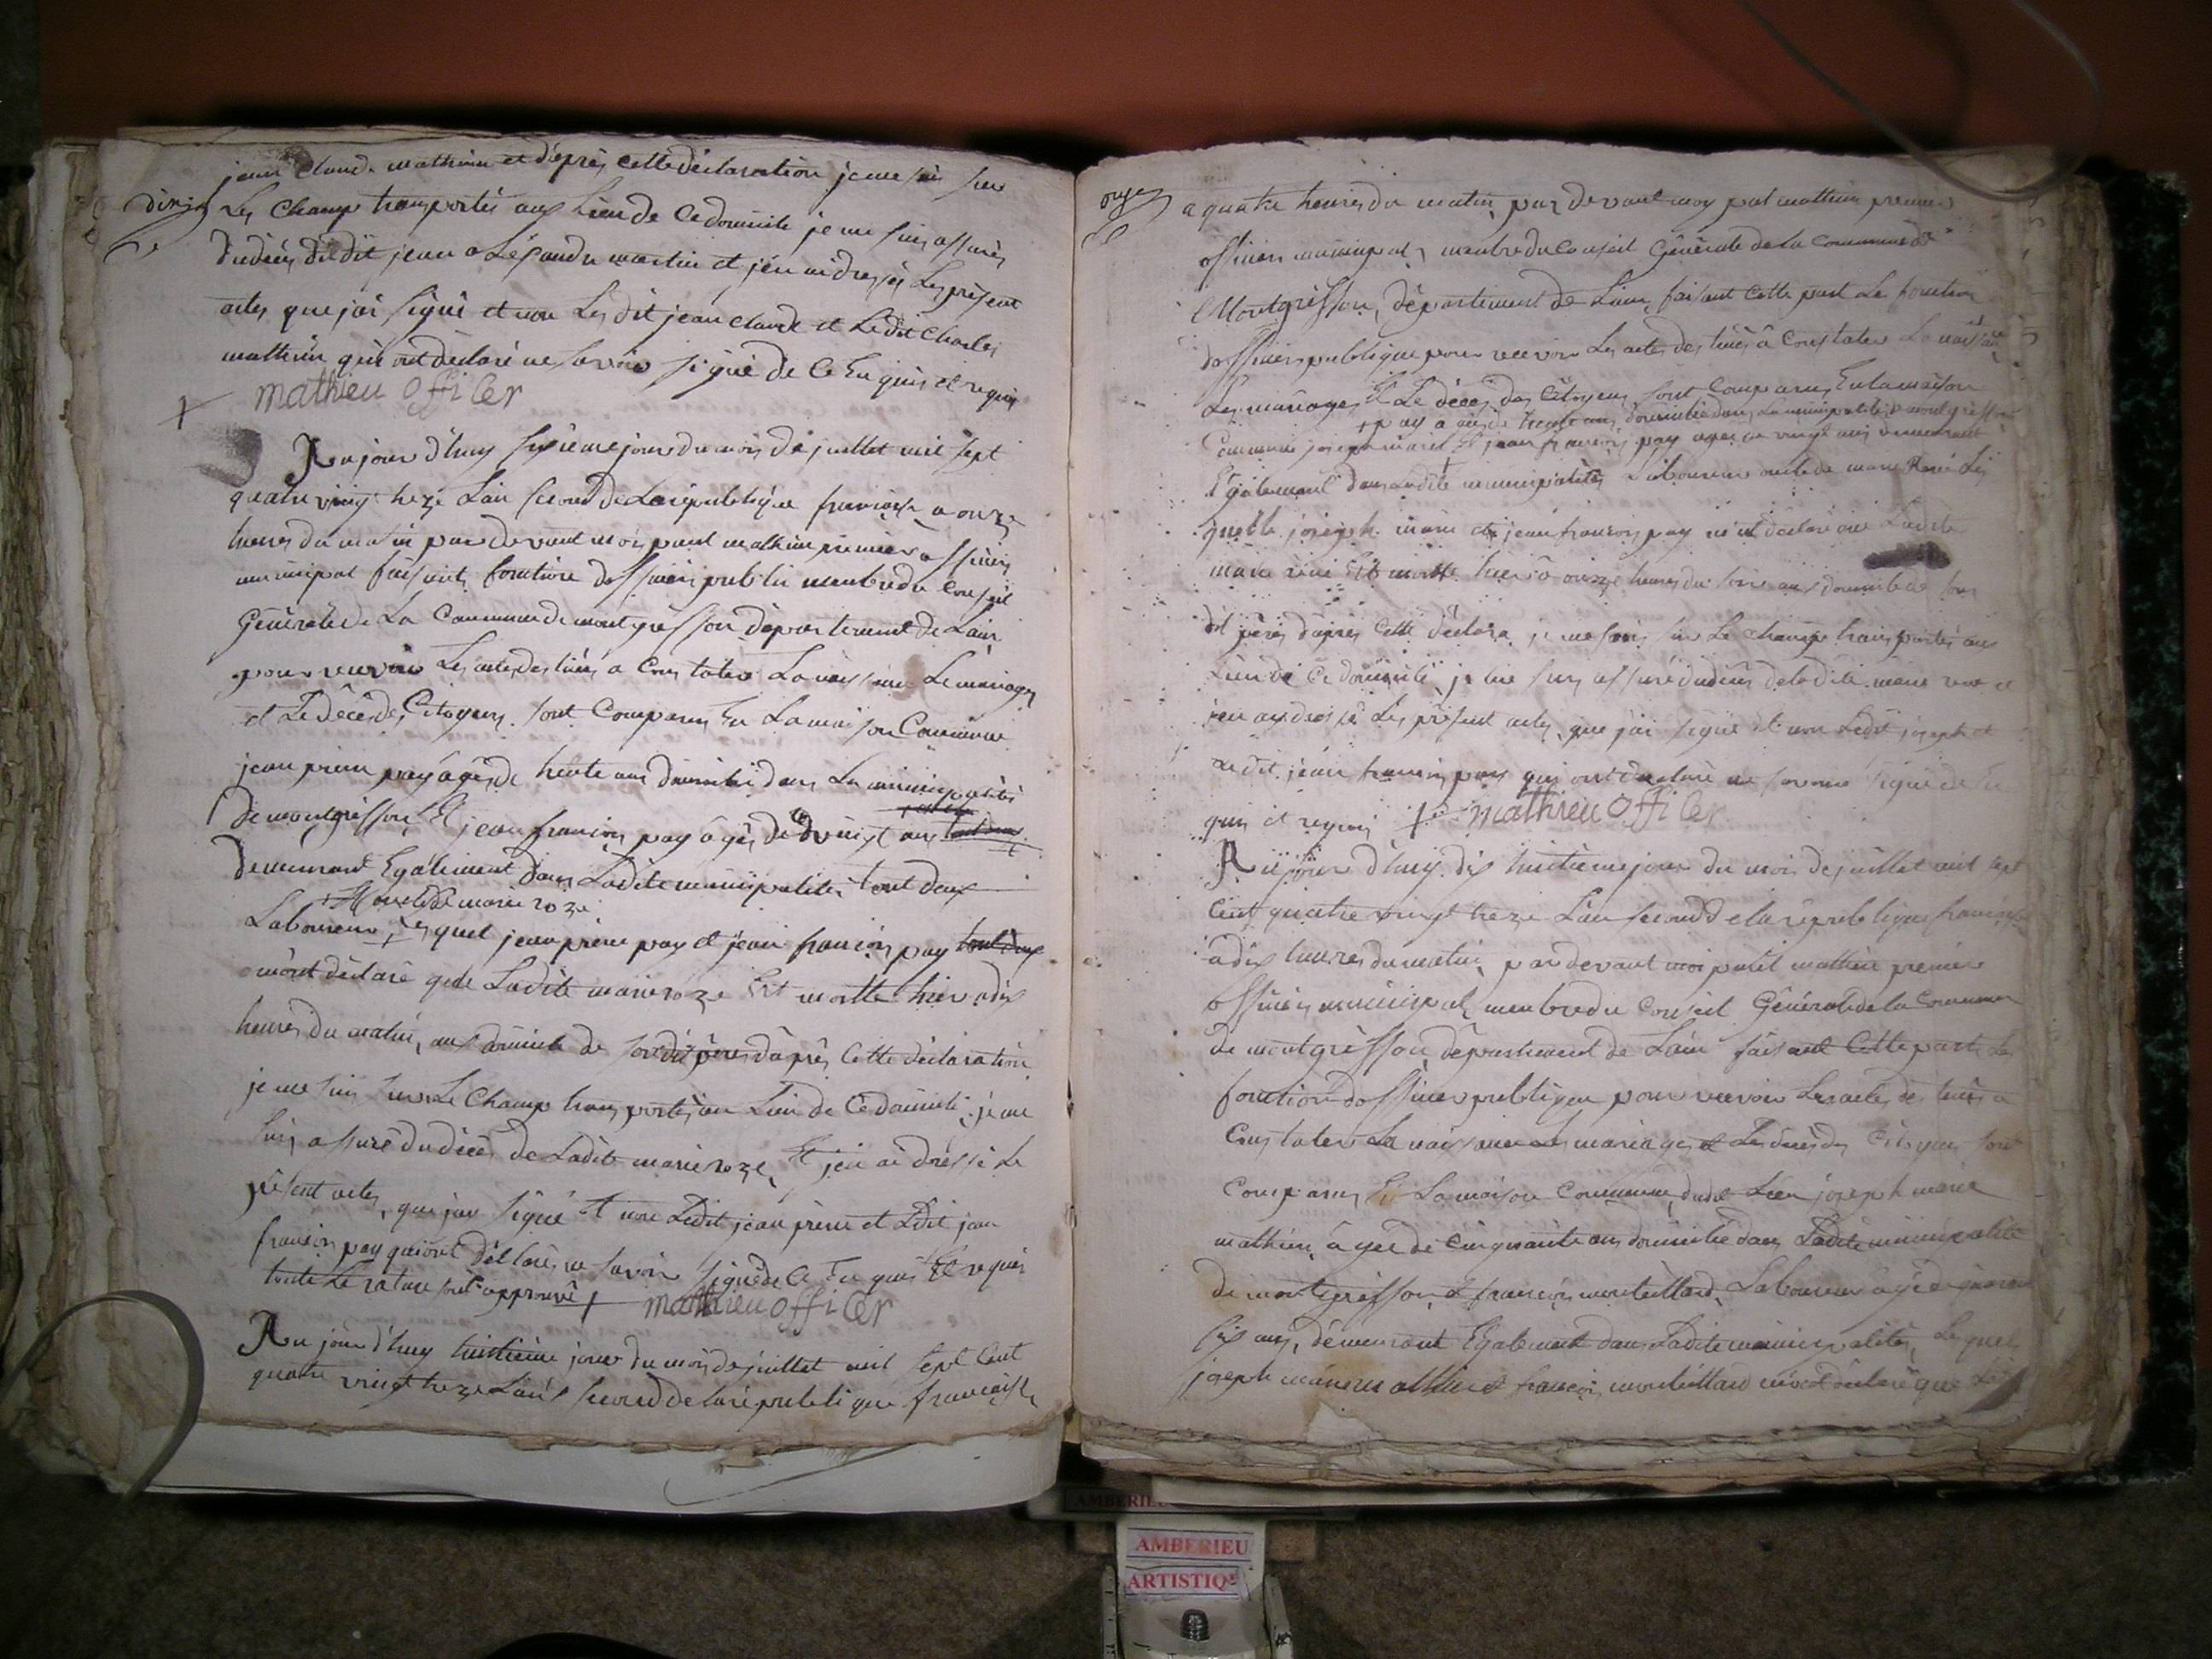 jean Claude mathieu et d'après cette déclaration je me suis sur
dixieme
Les champ transportés aux Lieu de Ce domicile je me suis assurés
du décès du dit jean martin et j'en ai dressés Les présent
actes que jai signé et non Les dit jean claude et Ledit Charles
mathieu qui ont déclaré ne savoir signé de Ce Enquis et requis
mathieu officer
Au jour d'huy sixieme jour du mois de juillet mil sept
quatre vingt treze Lan second de La république francaise a onze
heures du matin par devant moi paul mathieu premier officier
municipal faisant fonction dofficier public membre du Conseil
Générale de La Commune de montgriffon département de Lain
pour recevoir Les actes destinés a Constater La naissance Le mariages
et Le décè des Citoyens sont Comparus En La maison Commune
jean pierre pay âgés de trente ans domicilié dans La municipalités
de montgriffon Et jean francois pay âgés de vingt ans
demeurant Egalement dans Ladite municipalités tout deux
+ de marie roze
Laboureur Lesquel jean pierre pay et jean francois pay tout deux
mont déclaré que Ladite marie roze Est mortte hier a dix
heures du matin, aux domicile de son dit père d'après Cette déclaration
je me suis sur Le Champ transportés au Lieu de Ce domicile je me
suis assuré du décès de Ladite marie roze, Et j'en ai dressé Le
présent actes, que jay signé Et non Ledit jean pierre et Ledit jean
francois pay qui ont déclarés ne savoir signé de Ce Enquis Et requis
toute Le rature sont approuvé + mathieu officer
Au jour d'huy huitieme jour du mois de juillet mil sept Cent
quatre vingt treze L'an second de la république francaise
onze
a quatre heures du matin par devant moy paul mathieu premier
officier municipal membre du Conseil Générale de la Commune de
Montgriffon, département de Lain, faisant cette part Le fonction
dofficier publique pour recevoir Les actes destinés à Constater La naissance
Les mariages Et Le décès des Citoyens sont Comparus En la maison
+ pay a gés de trente ans domicilié dans La municipalité de montgriffon
Commune joseph marie Et jean francois pay agés de vingt ans demeurant
Egalement dans Ladite municipalités Laboureur oncle de marie
quelle joseph marie et jean francois pay mont déclaré que Ladite
marie Est mortte hier à onze heures du soir aux domicile de son
dit père d'après Cette déclara je me suis sur Le champ transportés aux
Lieu de Ce domicile je me suis assuré du décès de ladite marie et
j'en ay dressé Les présent actes que jai signé et non Ledit joseph et
Ledit jean francois pay qui ont déclaré ne savoir signé de
quis et requis + mathieu officer
Au jour d'huy dix huitieme jour du mois de juillet mil sept
Cent quatre vingt treze Lan second de la république francaise
a dix heures du matin, par devant moi paul mathieu premier
officier municipal membre du Conseil Générale de la Commune
de montgriffon, département de Lain faisant Cette part Le
fonction dofficier publique pour recevoir Les actes destinés a
Constater La naissance Les mariages et Le décès des Citoyens sont
Comparus En La maison Commune, dudit Lieu joseph marie
mathieu à gés de Cinquante ans domicilié dans Ladite municipalité
de montgriffon, Et francois monteillard, Laboureur âgé de quarante
six ans, démeurant Egalement dans Ladite municipalités, Lesquel
joseph marie mathieu et francois monteillard mont déclaré que
AMBERIEU
AMBERIEU
ARTISTIQ